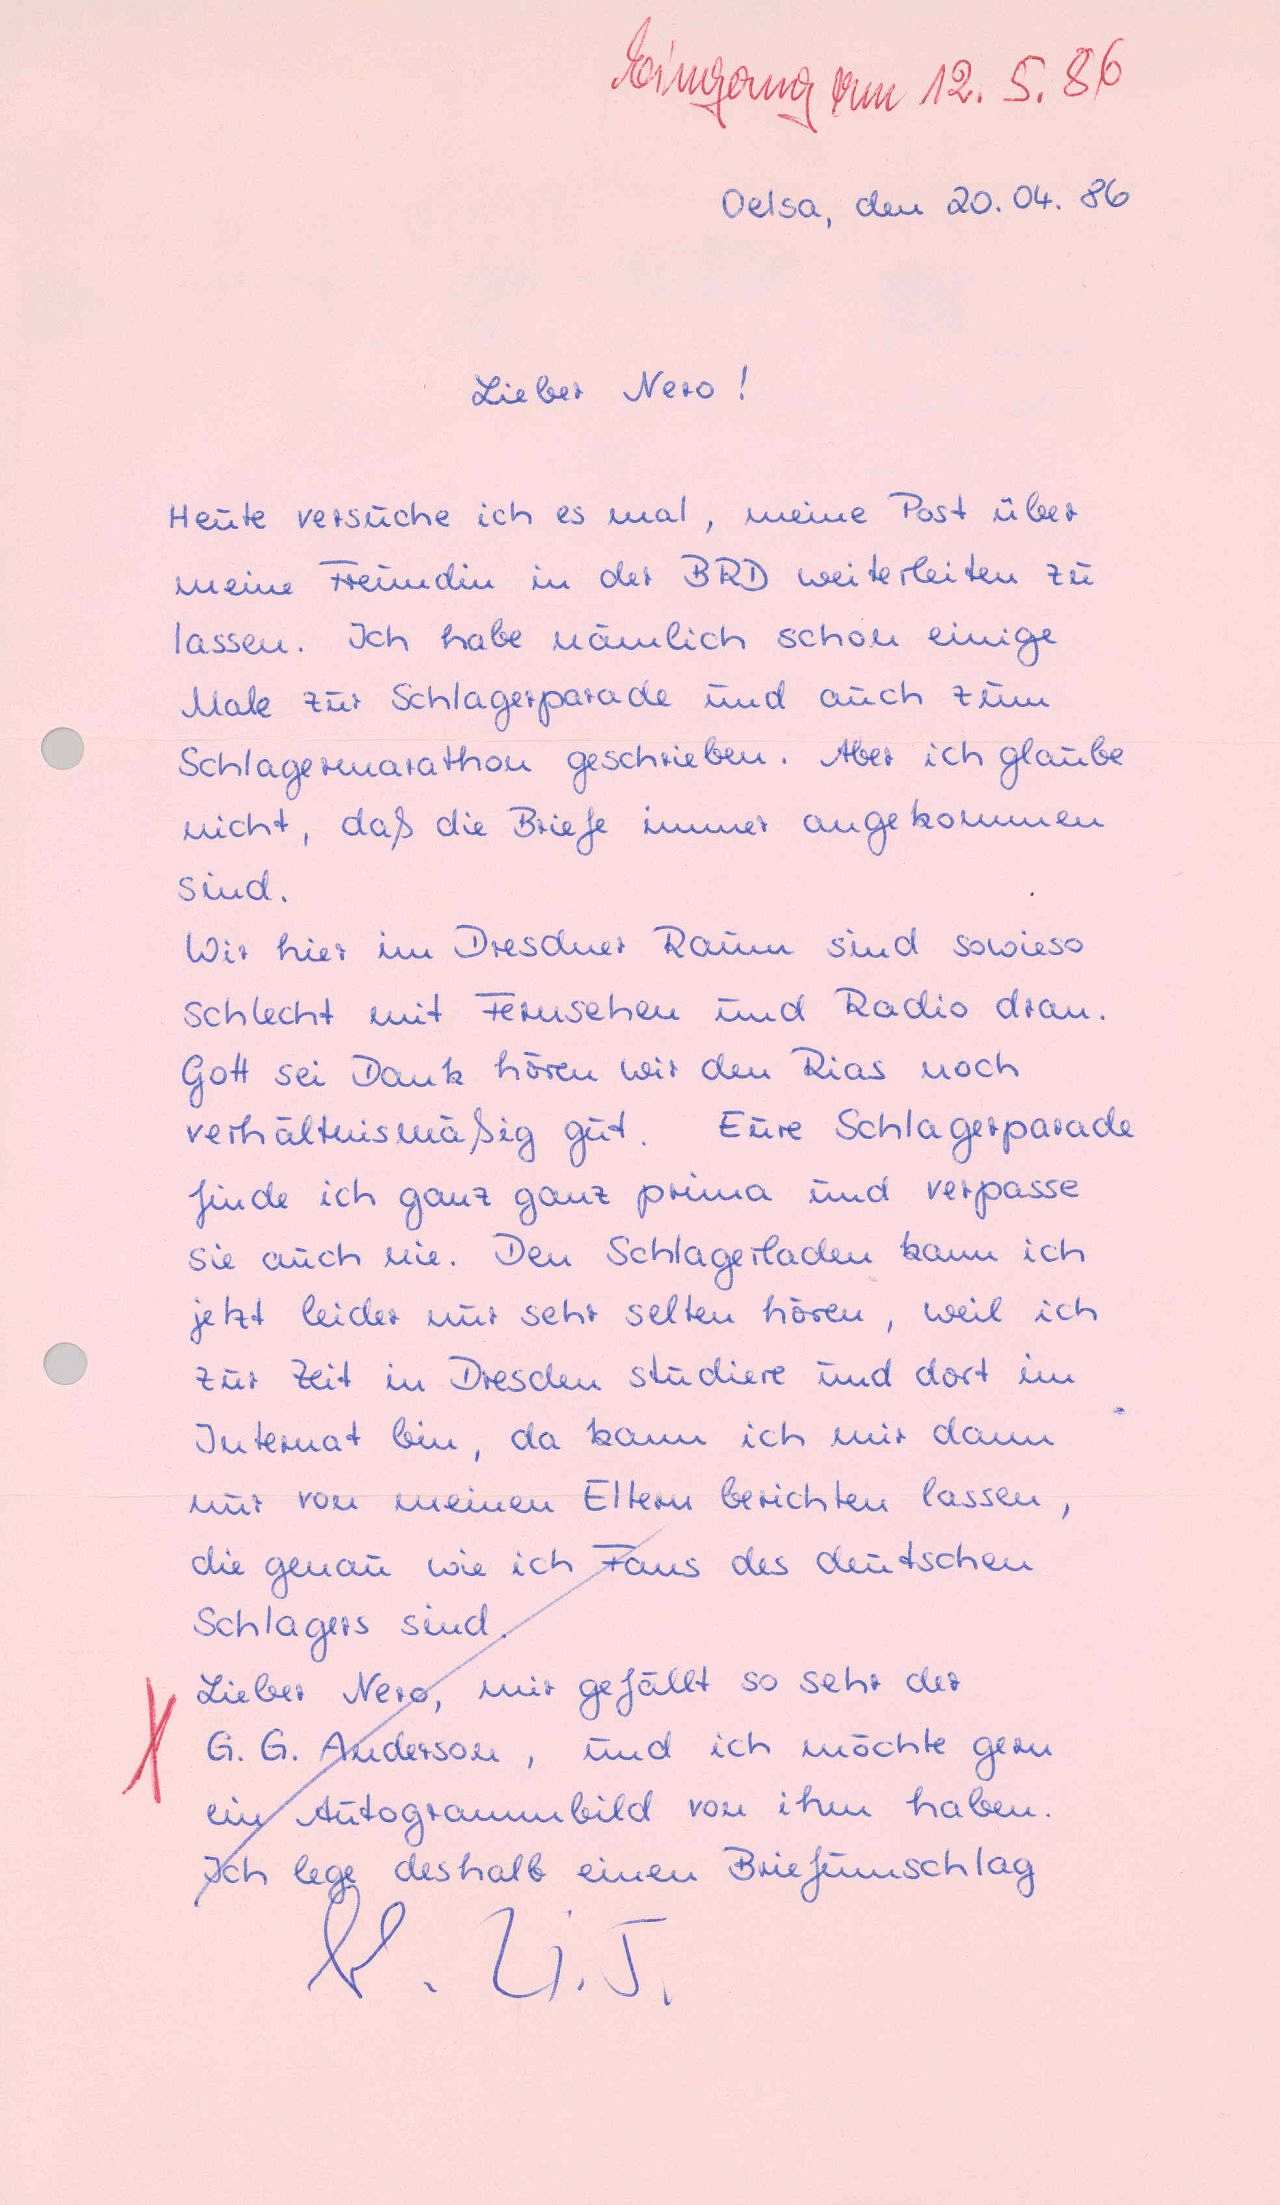 Eingang am 12. 5. 86
Oelsa, den 20. 04. 86
Lieber Nero!
Heute versuche ich es mal, meine Post über
meine Freundin in der BRD weiterleiten zu
lassen. Ich habe nämlich schon einige
Male zur Schlagerparade und auch zum
Schlagermarathon geschrieben. Aber ich glaube
nicht, daß die Briefe immer angekommen
sind.
Wir hier im Dresdner Raum sind sowieso
schlecht mit Fernsehen und Radio dran.
Gott sei Dank hören wir den Rias noch
verhältnismäßig gut. Eure Schlagerparade
finde ich ganz ganz prima und verpasse
sie auch nie. Den Schlagerladen kann ich
jetzt leider nur sehr selten hören, weil ich
zur Zeit in Dresden studiere und dort im
Internat bin, da kann ich mir dann
nur von meinen Eltern berichten lassen,
die genau wie ich Fans des deutschen
Schlagers sind.
Lieber Nero, mir gefällt so sehr der
G. G. Anderson, und ich möchte gern
ein Autogrammbild von ihm haben.
Ich lege deshalb einen Briefumschlag